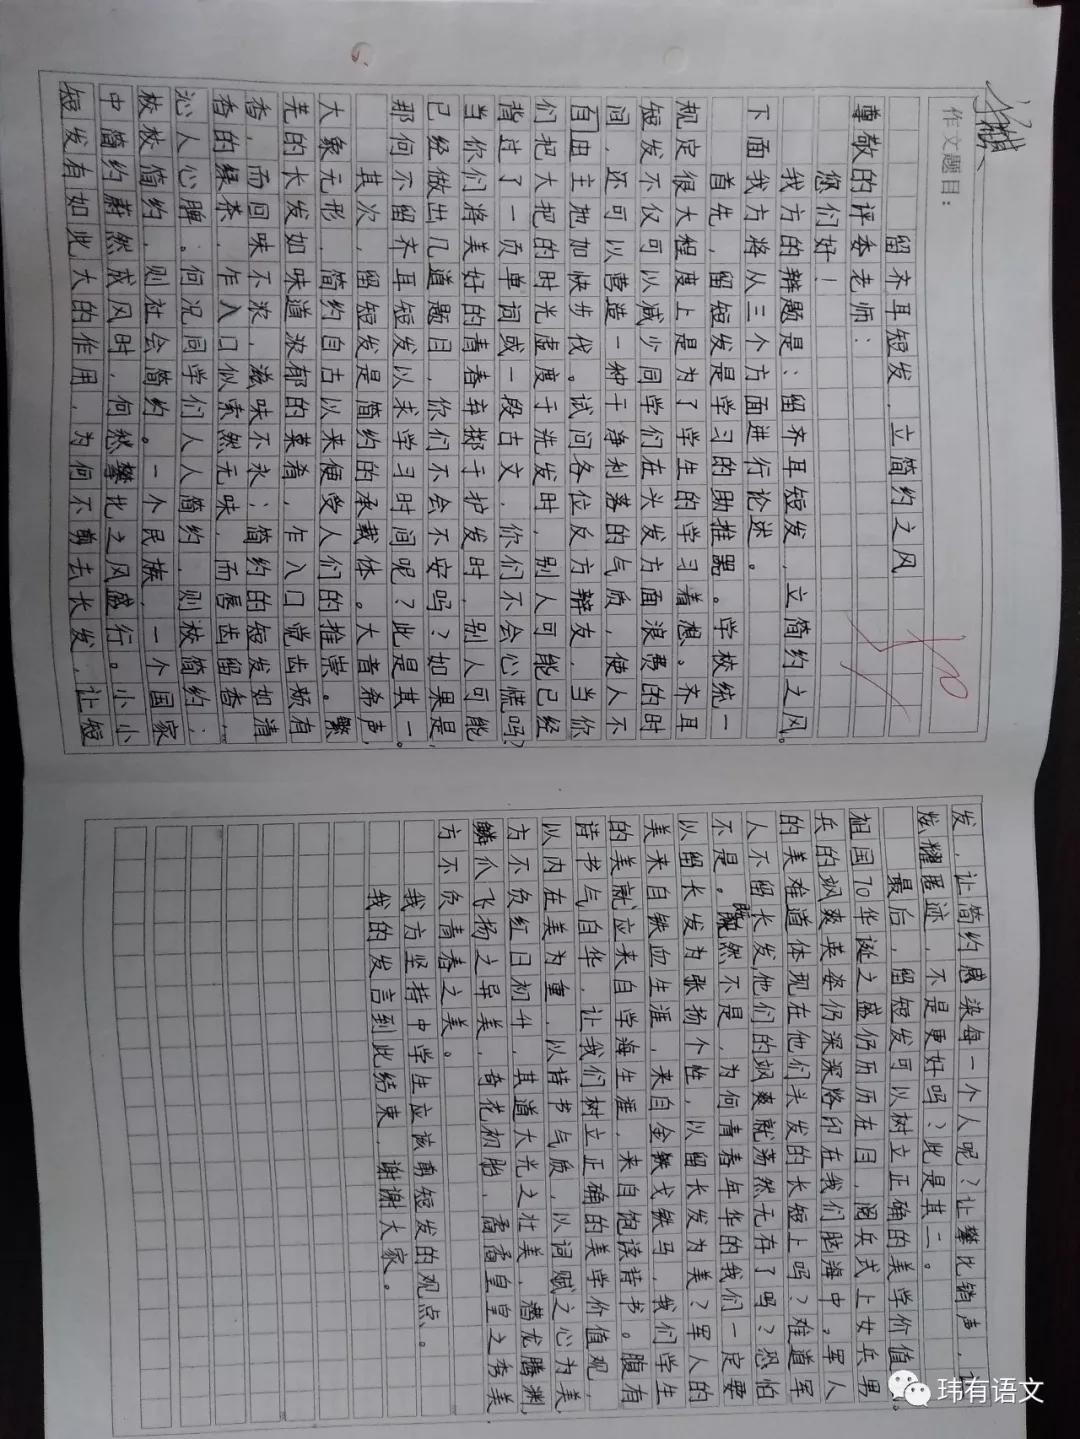 作文题目：
留齐耳短发，立简约之风
尊敬的评委老师：
您们好！
我方的辩题是：留齐耳短发，立简约之风。
下面我方将从三个方面进行论述。
首先，留短发是学习的助推器。学校统一
规定很大程度上是为了学生的学习着想。齐耳
短发不仅可以减少同学们在头发方面浪费的时
间，还可以营造一种干净利落的气质，使人不
自由主地加快步伐。试问各位反方辩友，当你
们把大把的时光虚度于洗发时，别人可能已经
背过了一页单词或一段古文，你们不会心慌吗？
当你们将美好的青春弃掷于护发时，别人可能
已经做出几道题目，你们不会不安吗？如果是，
那何不留齐耳短发以求学习时间呢？此是其一。
其次，留短发是简约的承载体。大音希声，
大象无形，简约自古以来便受人们的推崇。繁
芜的长发如味道浓郁的菜肴，乍入口觉齿颊有
香，而回味不浓，滋味不永；简约的短发如清
香的绿茶，乍入口似索然无味，而唇齿留香，
沁人心脾。何况同学们人人简约，则校简约；
校校简约，则社会简约。一个民族，一个国家
中简约蔚然成风时，何愁攀比之风盛行。小小
短发有如此大的作用，为何不剪去长发，让短
发，让简约感染每一个人呢？让攀比销声，让
炫耀匿迹，不是更好吗？此是其二。
最后，留短发可以树立正确的美学价值。
祖国70华诞之盛仍历历在目，阅兵式上女兵男
兵的飒爽英姿仍深深烙印在我们脑海中。军人
的美难道体现在他们头发的长短上吗？难道军
人不留长发，他们的飒爽就荡然无存了吗？恐怕
不是。既然不是，为何青春年华的我们一定要
以留长发为张扬个性，以留长发为美？军人的
美来自铁血生涯，来自金戈铁马，我们学生
的美就应来自学海生涯，来自饱读诗书。腹有
诗书气自华，让我们树立正确的美学价值观，
以内在美为重，以诗书气质，以词赋之心为美，
方不负红日初升，其道大光之壮美，潜龙腾渊，
鳞爪飞扬之异美，奇花初胎，矞矞皇皇之秀美，
方不负青春之美。
我方坚持中学生应该剪短发的观点。
我的发言到此结束，谢谢大家。
玮有语文